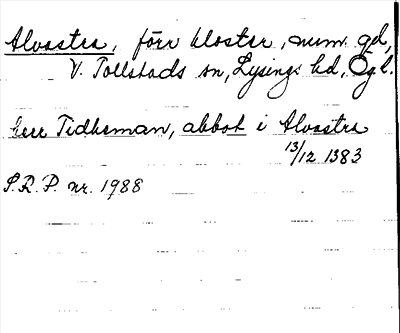 Alvastra, förr kloster, num. gd,
V. Tollstads sn, Lysings hd, Ögl.
herr Tidheman, abbot i Alvastra
13/12 1383
S.R.P. nr. 1988